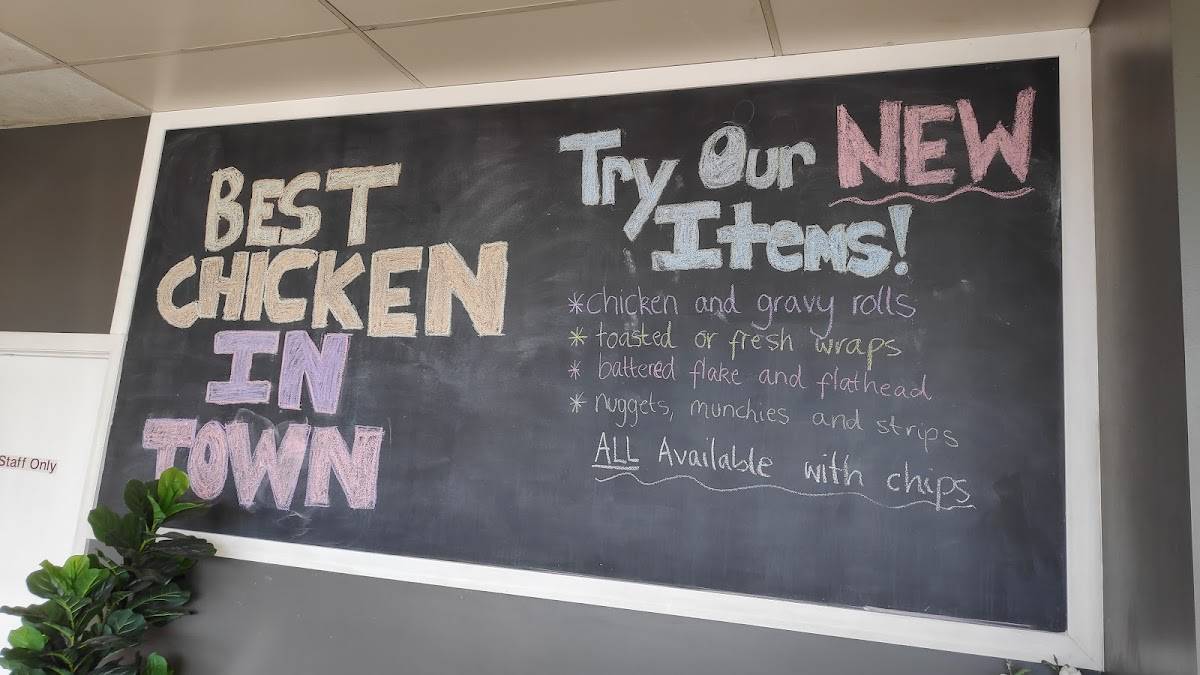 BEST
CHICKEN
IN
TOWN
Try Our NEW
Items!
*chicken and gravy rolls
* toasted or fresh wraps
* battered flake and flathead
* nuggets, munchies and strips
ALL Available with chips
Staff Only